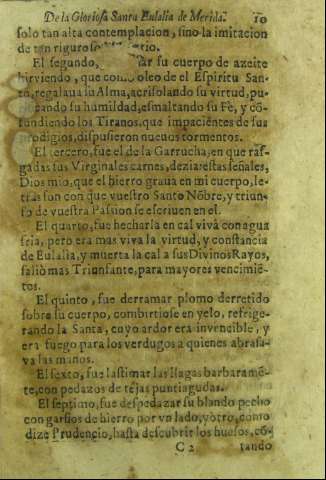 De la Gloriosa Santa Eulalia de Merida. 10
solo tan alta contemplacion, sino la imitacion
de tan riguroso
El segundo, ar su cuerpo de azeite
hirviendo, que como oleo de el Espiritu San-
to, regalaua su Alma, acrisolando su virtud, pu-
cando su humildad, esmaltando su Fè, y cō-
fundiendo los Tiranos. que impaciētes de sus
prodigios, dispusieron nueuos tormentos.
El tercero, fue el de la Garrucha, en que ras-
gadas sus Virginales carnes, dezia: estas señales,
Dios mio, que el hierro graua en mi cuerpo, le-
tras son con que vuestro Santo Nōbre, y triun-
fo de vuestra Passion se escriuen en el.
El quarto, fue hecharla en cal viva con agua
fria, pero era mas viva la virtud, y constancia
de Eulalia, y muerta la cal a sus Divinos Rayos,
saliò mas Triunfante, para mayores vencimiē-
tos.
El quinto, fue derramar plomo derretido
sobre su cuerpo, combirtiose en yelo, refrige-
rando la Santa, cuyo ardor era invencible, y
era fuego para los verdugos a quienes abrasa-
va las manos.
El sexto, fue lastimar las llagas barbaramē-
te, con pedazos de tejas puntiagudas.
El septimo, fue despedazar su blando pecho
con garfios de hierro por vn lado, y otro, como
dize Prudencio, hasta descubrir los huesos, cō-
C 2 tando